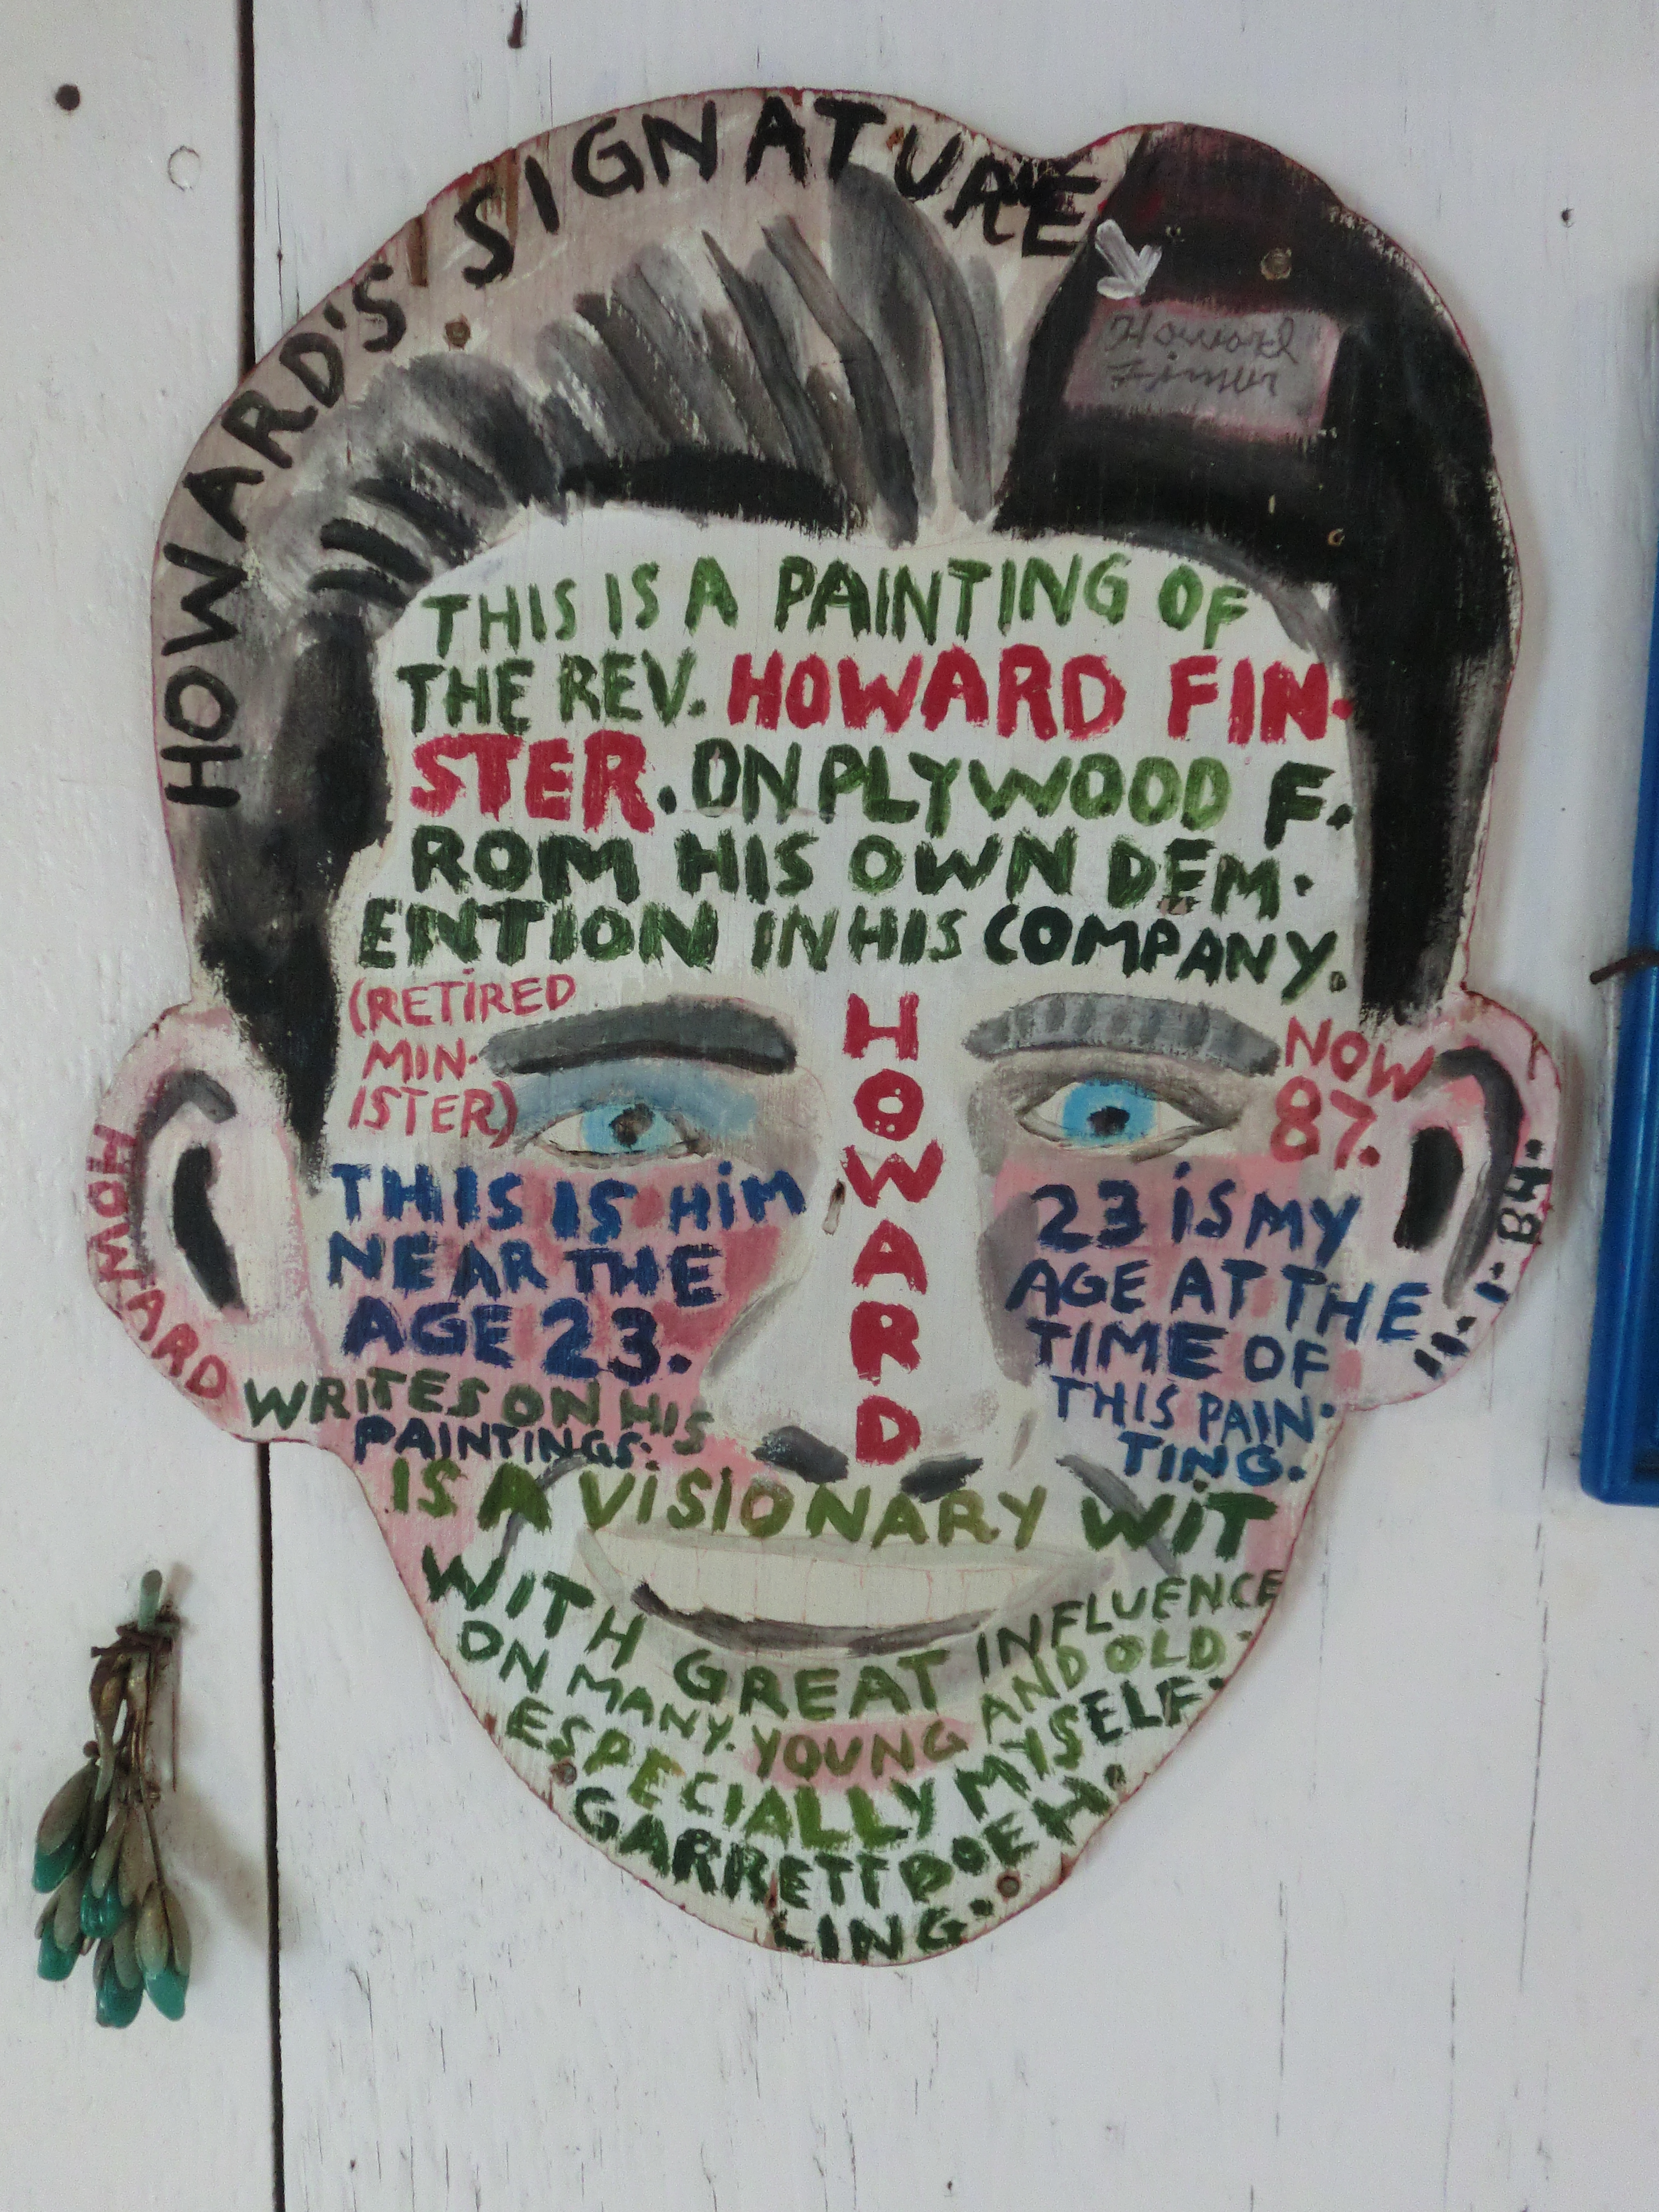 HOWARD'S SIGNATURE
Howard
THIS IS A PAINTING OF
THE REV. HOWARD FIN-
STER. ON PLYWOOD F.
ROM HIS OWN DEM.
ENTION IN HIS COMPANY.
(RETIRED
MIN.
ISTER)
HOWARD
NOW
87.
THIS IS HiM
NEAR THE
AGE 23.
23 iS MY
AGE AT THE
TIME OF
THIS PAIN-
TING.
HOWARD
WRITES ON HIS
PAINTINGS:
IS A ViSIONARY WiT
WITH GREAT INFLUENCE
ON MANY. YOUNG AND OLD
ESPECIALLY MYSELF:
GARRETT DOEH.
LING.